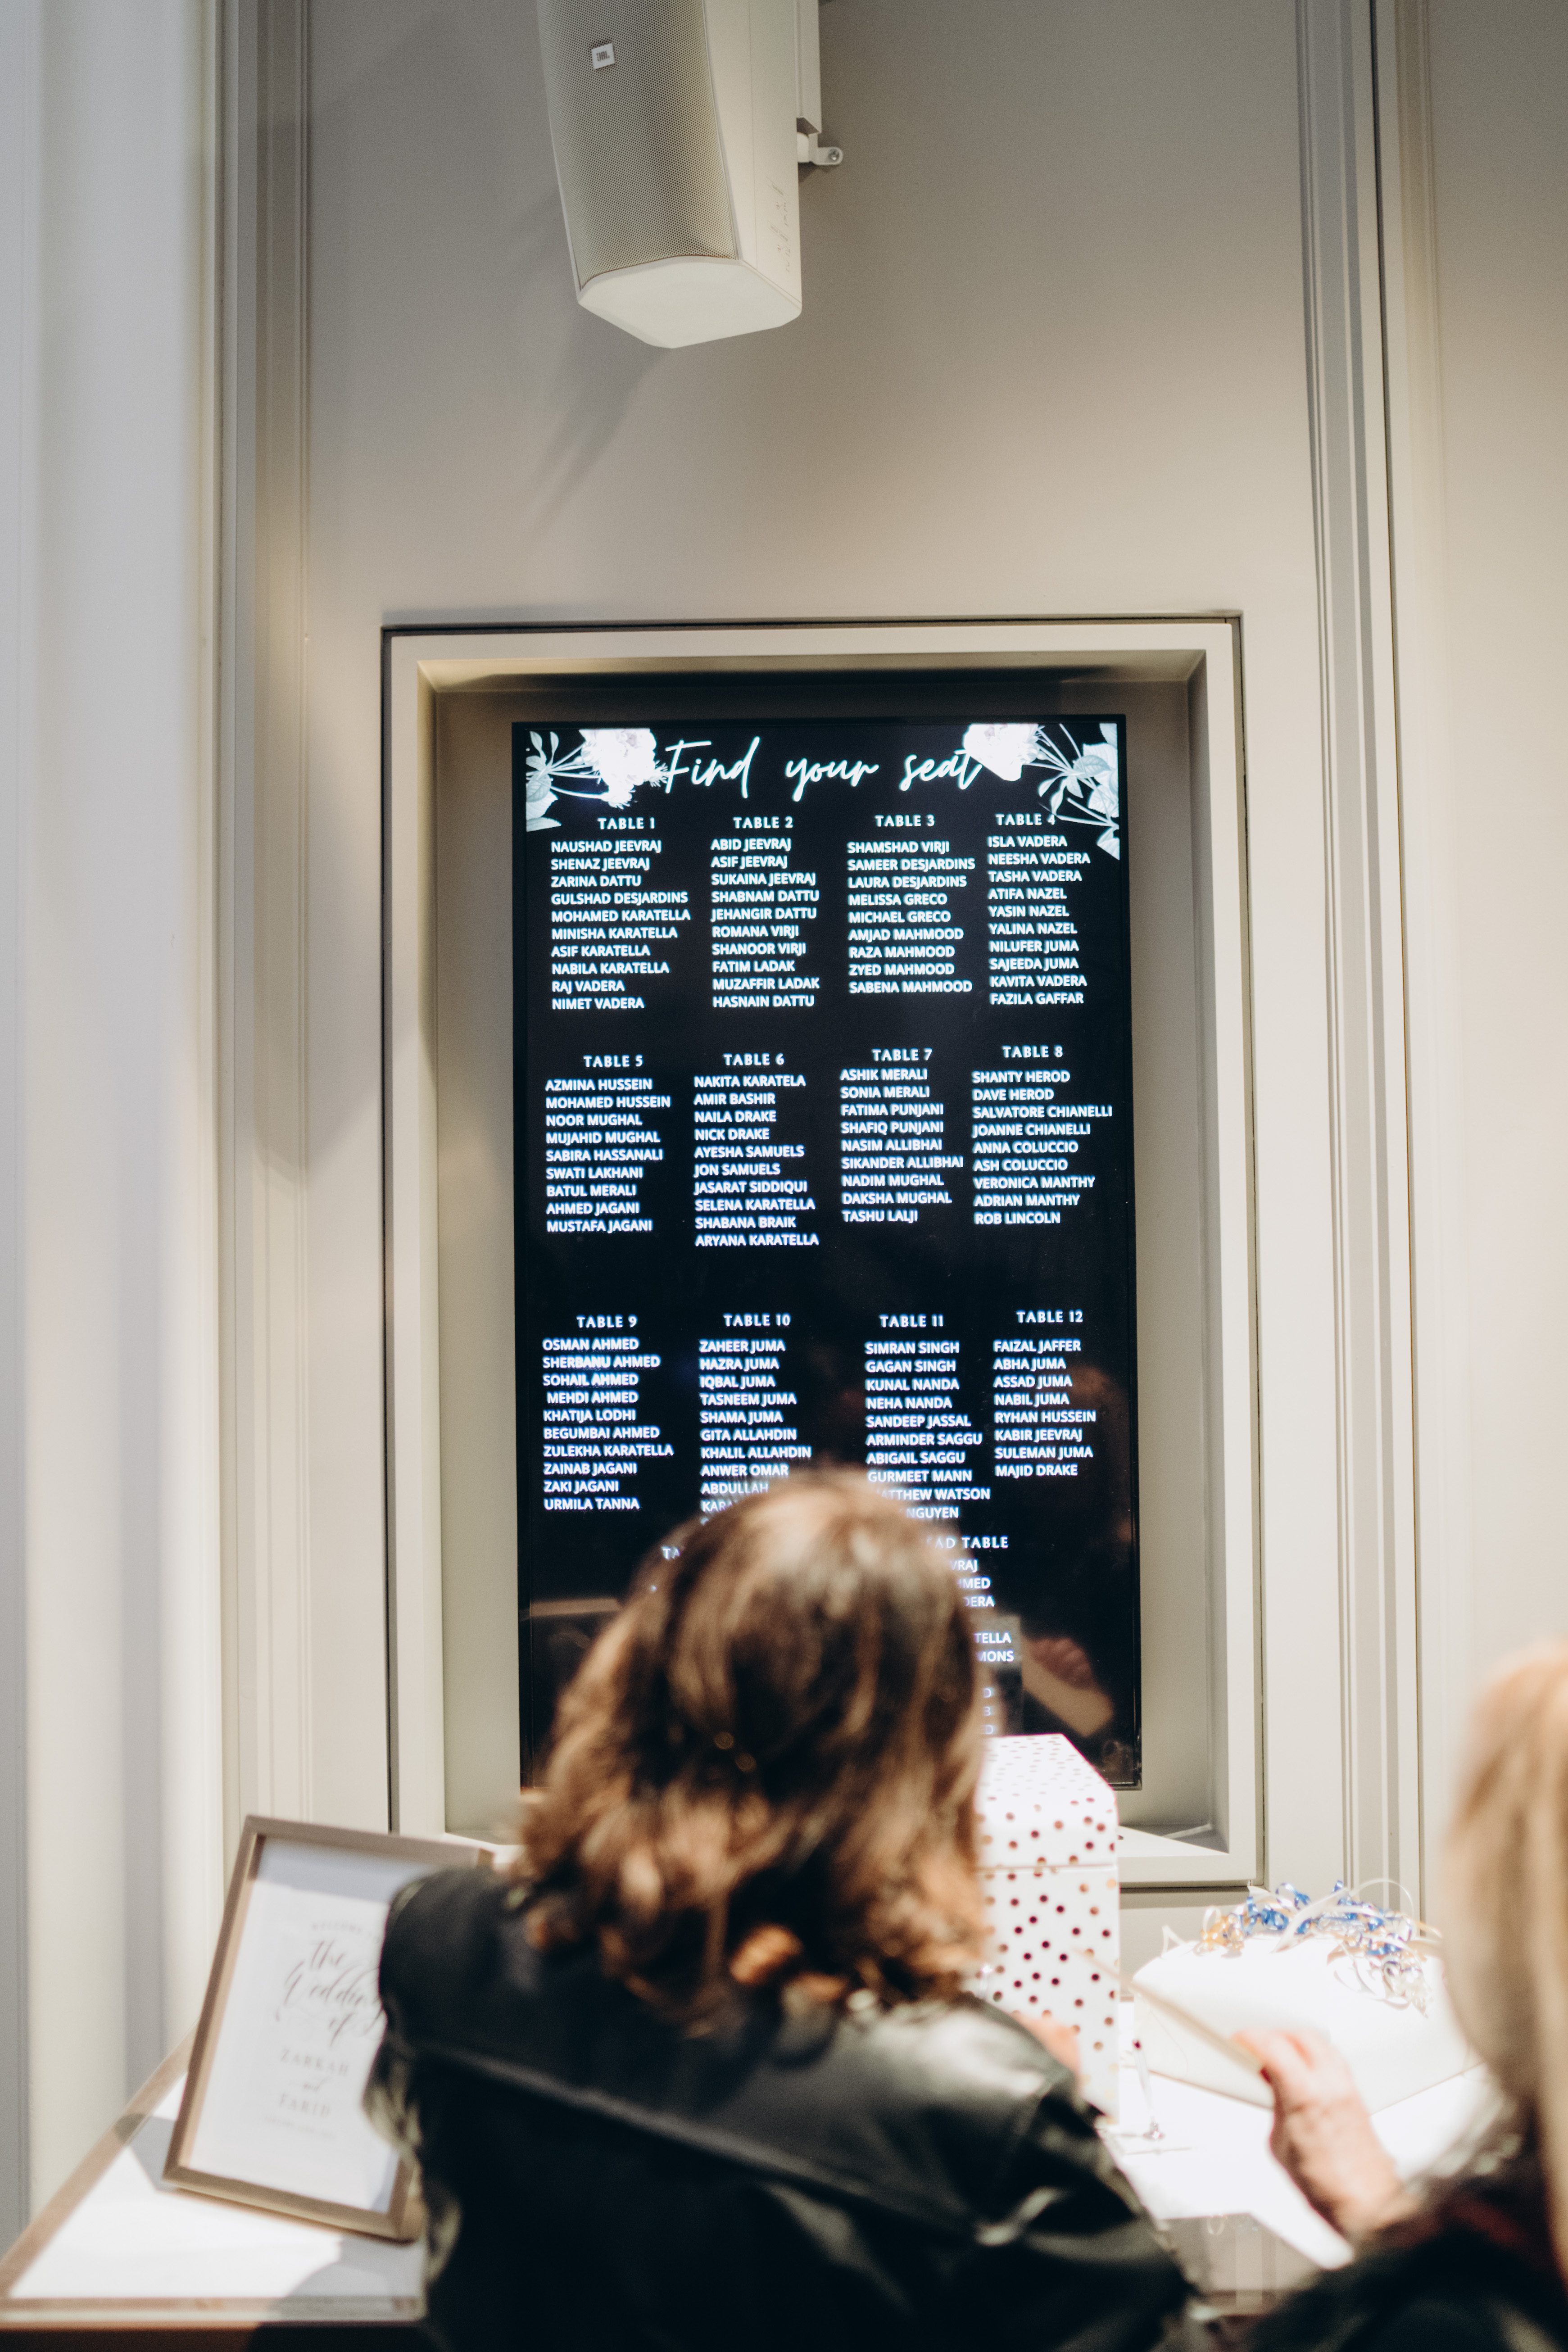 JBL
Find your seat
TABLE 1
NAUSHAD JEEVRAJ
SHENAZ JEEVRAJ
ZARINA DATTU
GULSHAD DESJARDINS
MOHAMED KARATELLA
MINISHA KARATELLA
ASIF KARATELLA
NABILA KARATELLA
RAJ VADERA
NIMET VADERA
TABLE 2
ABID JEEVRAJ
ASIF JEEVRAJ
SUKAINA JEEVRAJ
SHABNAM DATTU
JEHANGIR DATTU
ROMANA VIRJI
SHANOOR VIRJI
FATIM LADAK
MUZAFFIR LADAK
HASNAIN DATTU
TABLE 3
SHAMSHAD VIRJI
SAMEER DESJARDINS
LAURA DESJARDINS
MELISSA GRECO
MICHAEL GRECO
AMJAD MAHMOOD
RAZA MAHMOOD
ZYED MAHMOOD
SABENA MAHMOOD
TABLE 4
ISLA VADERA
NEESHA VADERA
TASHA VADERA
ATIFA NAZEL
YASIN NAZEL
YALINA NAZEL
NILUFER JUMA
SAJEEDA JUMA
KAVITA VADERA
FAZILA GAFFAR
TABLE 5
AZMINA HUSSEIN
MOHAMED HUSSEIN
NOOR MUGHAL
MUJAHID MUGHAL
SABIRA HASSANALI
SWATI LAKHANI
BATUL MERALI
AHMED JAGANI
MUSTAFA JAGANI
TABLE 6
NAKITA KARATELA
AMIR BASHIR
NAILA DRAKE
NICK DRAKE
AYESHA SAMUELS
JON SAMUELS
JASARAT SIDDIQUI
SELENA KARATELLA
SHABANA BRAIK
ARYANA KARATELLA
TABLE 7
ASHIK MERALI
SONIA MERALI
FATIMA PUNJANI
SHAFIQ PUNJANI
NASIM ALLIBHAI
SIKANDER ALLIBHAI
NADIM MUGHAL
DAKSHA MUGHAL
TASHU LALJI
TABLE 8
SHANTY HEROD
DAVE HEROD
SALVATORE CHIANELLI
JOANNE CHIANELLI
ANNA COLUCCIO
ASH COLUCCIO
VERONICA MANTHY
ADRIAN MANTHY
ROB LINCOLN
TABLE 9
OSMAN AHMED
SHERBANU AHMED
SOHAIL AHMED
MEHDI AHMED
KHATIJA LODHI
BEGUMBAI AHMED
ZULEKHA KARATELLA
ZAINAB JAGANI
ZAKI JAGANI
URMILA TANNA
TABLE 10
ZAHEER JUMA
HAZRA JUMA
IQBAL JUMA
TASNEEM JUMA
SHAMA JUMA
GITA ALLAHDIN
KHALIL ALLAHDIN
ANWER OMAR
ABDULLAH
TABLE 11
SIMRAN SINGH
GAGAN SINGH
KUNAL NANDA
NEHA NANDA
SANDEEP JASSAL
ARMINDER SAGGU
ABIGAIL SAGGU
GURMEET MANN
WATSON
NGUYEN
TABLE 12
FAIZAL JAFFER
ABHA JUMA
ASSAD JUMA
NABIL JUMA
RYHAN HUSSEIN
KABIR JEEVRAJ
SULEMAN JUMA
MAJID DRAKE
TABLE
the
Wedding
of
ZARKAH
and
FARID